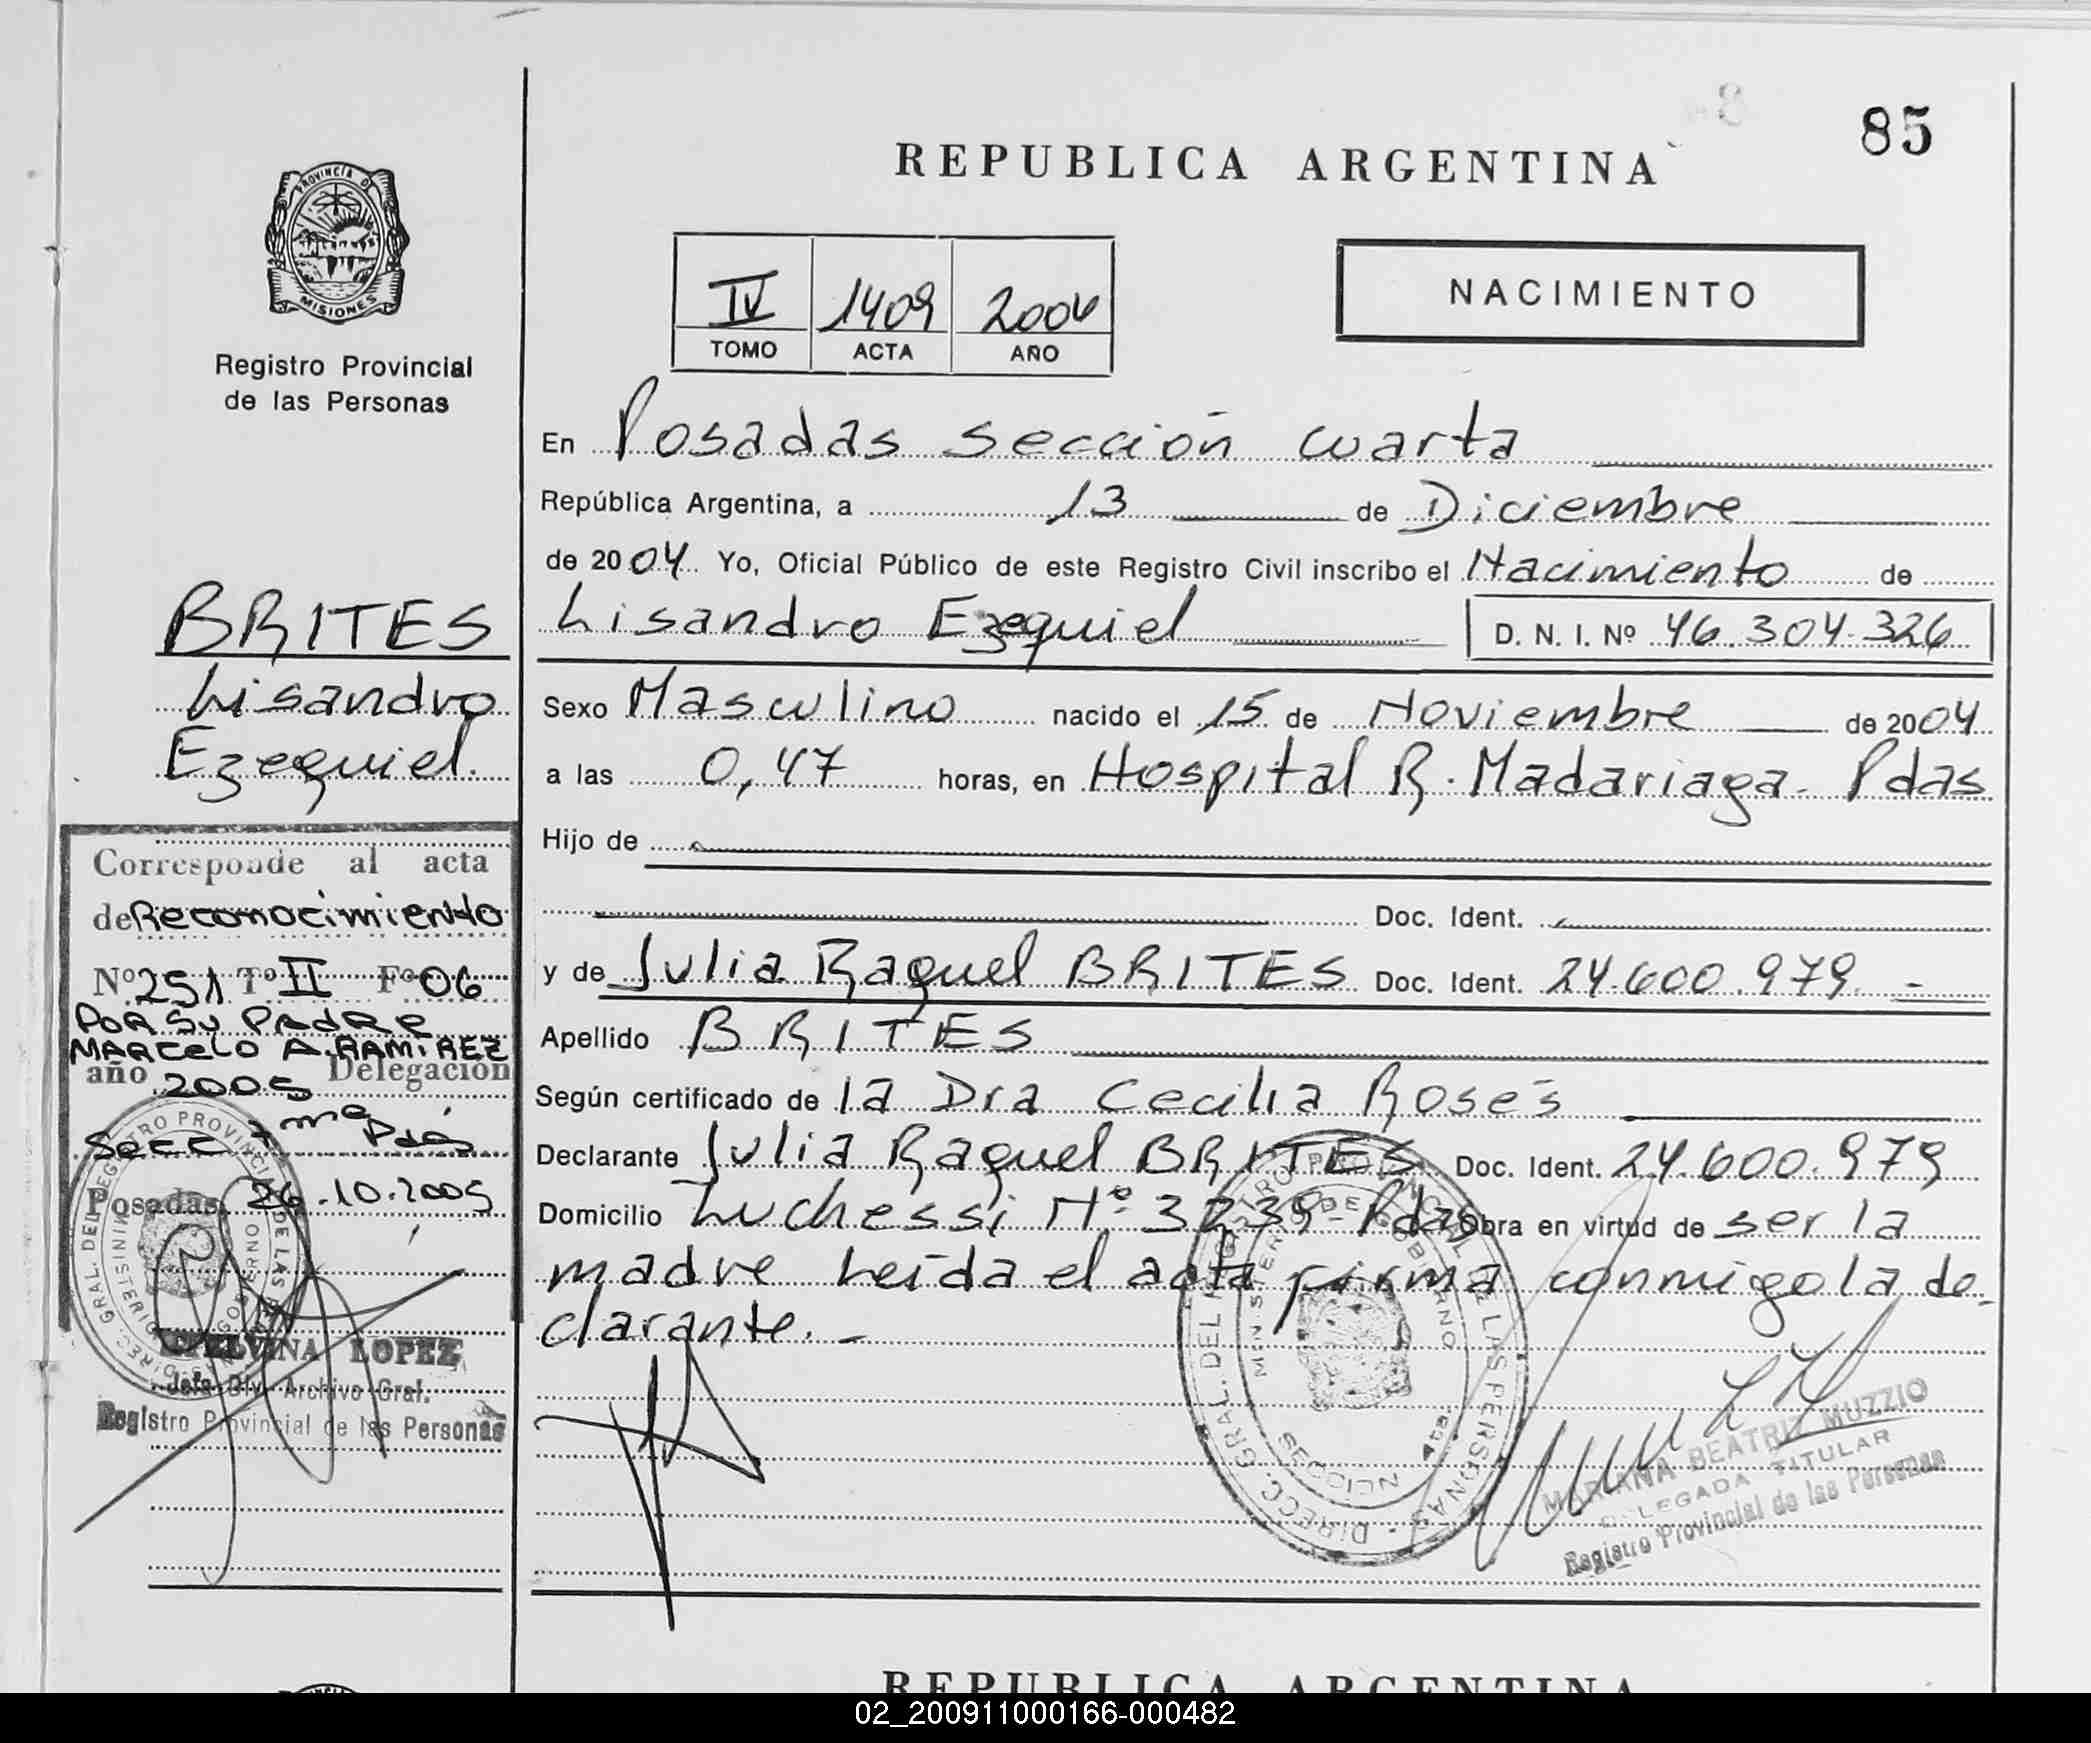 85
REPUBLICA ARGENTINA
PROVINCIA DE
MISIONES
Registro Provincial
de las Personas
IV 1409 2004
TOMO ACTA AÑO
NACIMIENTO
En Posadas sección cuarta
República Argentina, a 13 de Diciembre
de 2004 Yo, Oficial Público de este Registro Civil inscribo el Nacimiento de
Lisandro Ezequiel D. N. I. Nº 46.304.326
Sexo Masculino nacido el 15 de Noviembre de 2004
a las 0,47 horas, en Hospital R. Madariaga - Pdas
Hijo de
Doc. Ident.
y de Julia Raquel BRITES Doc. Ident. 24.600.979 -
Apellido BRITES
Según certificado de la Dra Cecilia Rosés
Declarante Julia Raquel BRITES Doc. Ident. 24.600.979
Domicilio Luchessi Nº 3239 - Pdas Obra en virtud de ser la
madre Leída el acta firma conmigo la de
clarante. -
MARIANA BEATRIZ MUZZIO
DELEGADA TITULAR
Registro Provincial de las Personas
BRITES
Lisandro
Ezequiel
Corresponde al acta
de Reconocimiento
Nº 251 Tº II Fº 06
POR SU PADRE
MARCELO A. RAMIREZ
año 2005 Delegación
Secc 7ma Pdas
Posadas, 26.10.2005
LOPEZ
Jefa Div. Archivo Gral.
Registro Provincial de las Personas
REPUBLICA ARGENTINA
02_200911000166-000482